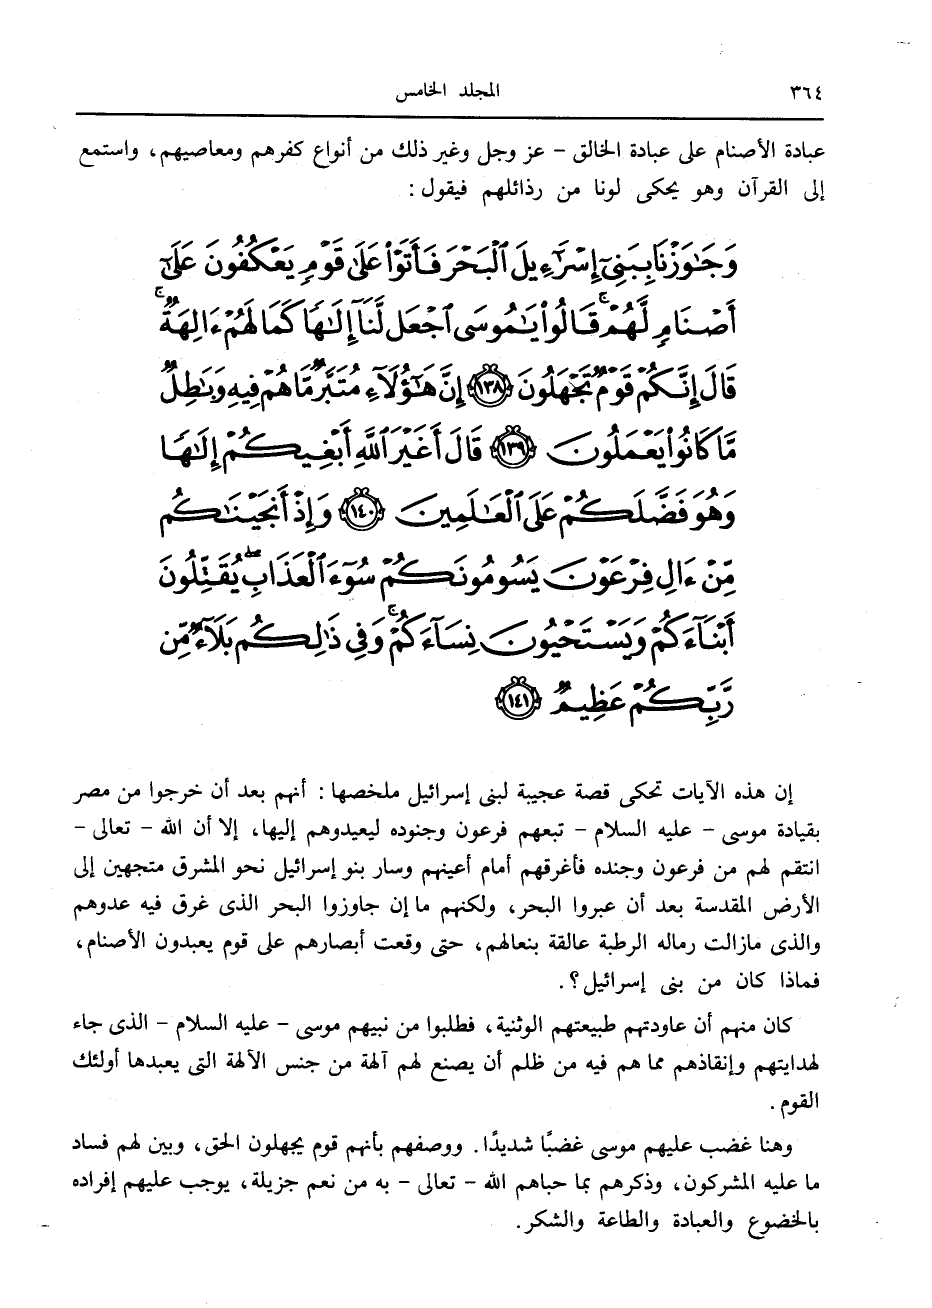 ٣٦٤ المجلد الخامس
عبادة الأصنام على عبادة الخالق - عز وجل وغير ذلك من أنواع كفرهم ومعاصيهم، واستمع
إلى القرآن وهو يحكى لونا من رذائلهم فيقول :
وَجَٰوَزْنَا بِبَنِىٓ إِسْرَٰٓءِيلَ ٱلْبَحْرَ فَأَتَوْا۟ عَلَىٰ قَوْمٍ يَعْكُفُونَ عَلَىٰٓ
أَصْنَامٍ لَّهُمْ ۚ قَالُوا۟ يَٰمُوسَى ٱجْعَل لَّنَآ إِلَٰهًا كَمَا لَهُمْ ءَالِهَةٌ ۚ
قَالَ إِنَّكُمْ قَوْمٌ تَجْهَلُونَ ﴿١٣٨﴾ إِنَّ هَٰٓؤُلَآءِ مُتَبَّرٌ مَّا هُمْ فِيهِ وَبَٰطِلٌ
مَّا كَانُوا۟ يَعْمَلُونَ ﴿١٣٩﴾ قَالَ أَغَيْرَ ٱللَّهِ أَبْغِيكُمْ إِلَٰهًا
وَهُوَ فَضَّلَكُمْ عَلَى ٱلْعَٰلَمِينَ ﴿١٤٠﴾ وَإِذْ أَنجَيْنَٰكُم
مِّنْ ءَالِ فِرْعَوْنَ يَسُومُونَكُمْ سُوٓءَ ٱلْعَذَابِ ۖ يُقَتِّلُونَ
أَبْنَآءَكُمْ وَيَسْتَحْيُونَ نِسَآءَكُمْ ۚ وَفِى ذَٰلِكُم بَلَآءٌ مِّن
رَّبِّكُمْ عَظِيمٌ ﴿١٤١﴾
إن هذه الآيات تحكى قصة عجيبة لبنى إسرائيل ملخصها : أنهم بعد أن خرجوا من مصر
بقيادة موسى - عليه السلام - تبعهم فرعون وجنوده ليعيدوهم إليها، إلا أن الله - تعالى -
انتقم لهم من فرعون وجنده فأغرقهم أمام أعينهم وسار بنو إسرائيل نحو المشرق متجهين إلى
الأرض المقدسة بعد أن عبروا البحر، ولكنهم ما إن جاوزوا البحر الذى غرق فيه عدوهم
والذى مازالت رماله الرطبة عالقة بنعالهم، حتى وقعت أبصارهم على قوم يعبدون الأصنام،
فماذا كان من بنى إسرائيل؟.
كان منهم أن عاودتهم طبيعتهم الوثنية، فطلبوا من نبيهم موسى - عليه السلام - الذى جاء
لهدايتهم وإنقاذهم مما هم فيه من ظلم أن يصنع لهم آلهة من جنس الآلهة التى يعبدها أولئك
القوم.
وهنا غضب عليهم موسى غضبًا شديدًا. ووصفهم بأنهم قوم يجهلون الحق، وبين لهم فساد
ما عليه المشركون، وذكرهم بما حباهم الله - تعالى - به من نعم جزيلة، يوجب عليهم إفراده
بالخضوع والعبادة والطاعة والشكر.